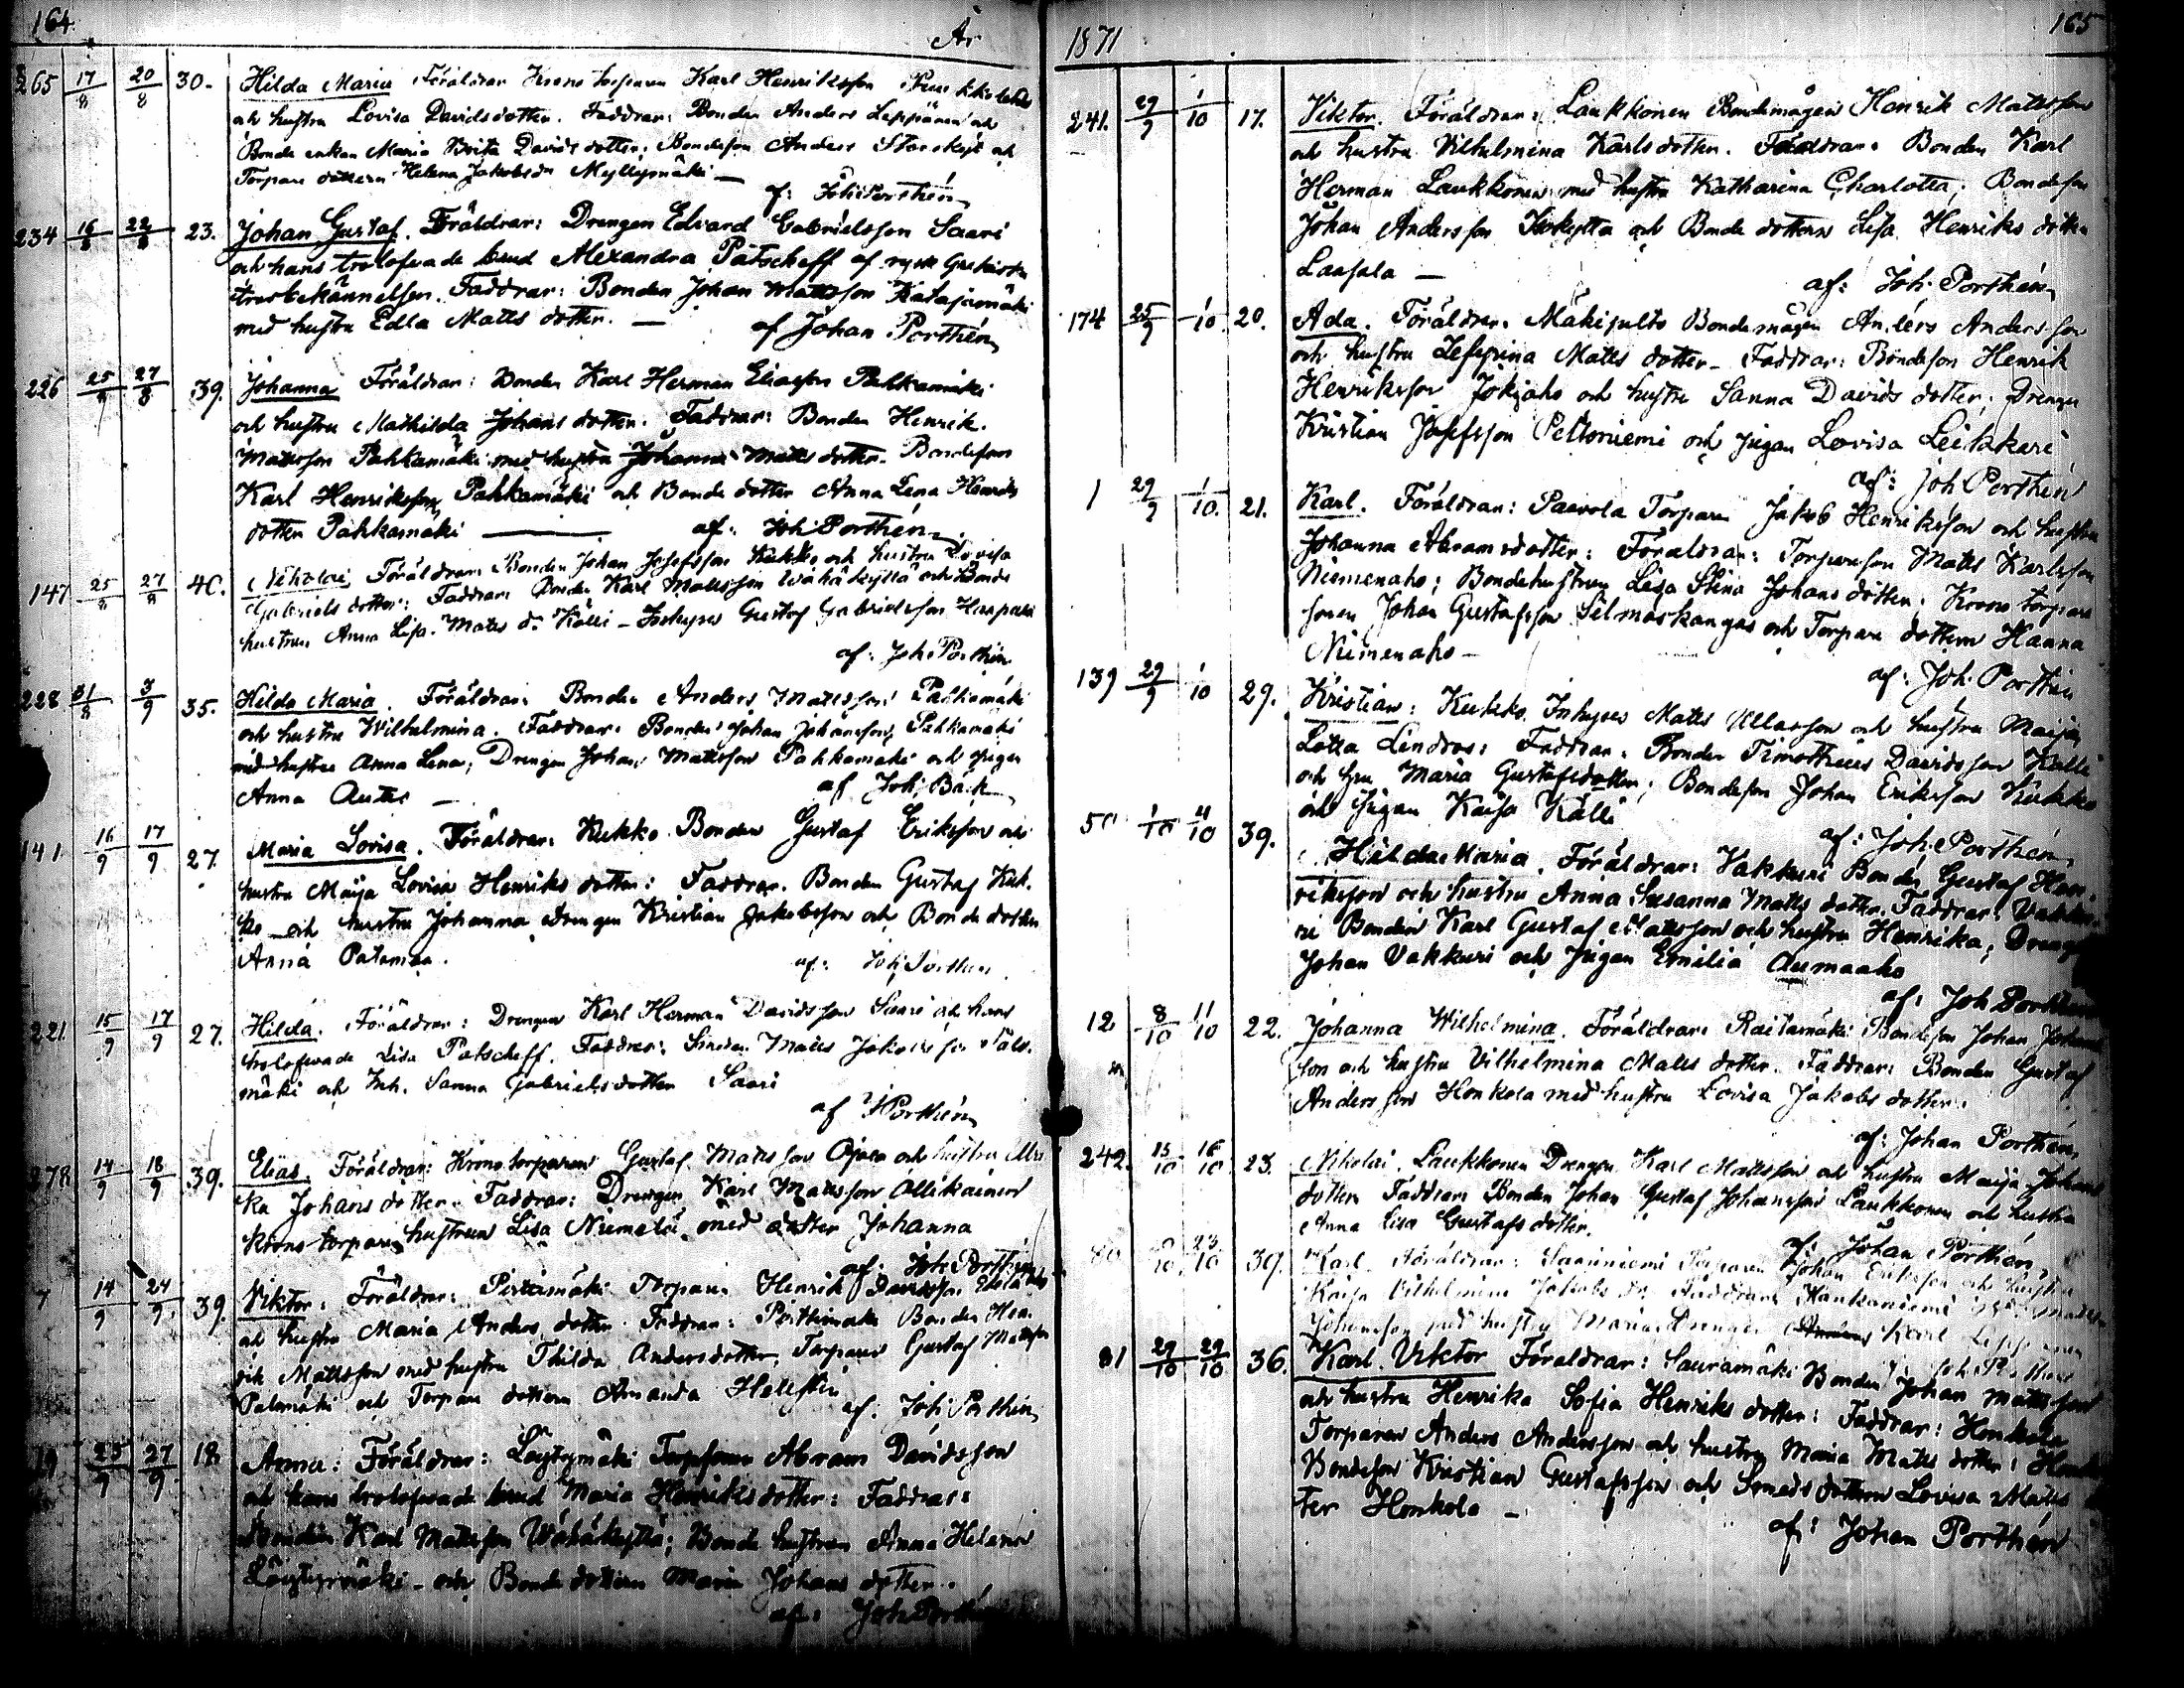 164.
År
265 17/8 20/8 30. Hilda Maria Föräldrar Krono torparen Karl Henriksson
och hustru Lovisa Davidsdotter. Faddrar: Bonden Anders Leppänen och
Bonde enkan Maria Brita Davids dotter; Bondeson Anders Storskept och
Torpare dottern Helena Jakobsdr Myllymäki —
af: Joh: Porthén
234 16/8 22/8 23. Johan Gustaf. Föräldrar: Drengen Edvard Gabrielsson Saari
och hans trolofvade brud Alexandra Patscheff af rysk Grekiska
trosbekännelsen. Faddrar: Bonden Johan Mattsson Katajamäki
med hustru Edla Matts dotter. —
af Johan Porthén
226 25/8 27/8 39. Johanna Föräldrar: Bonden Karl Herman Eliasson Pahkamäki
och hustru Mathilda Johans dotter. Faddrar: Bonden Henrik
Mattsson Pahkamäki med hustru Johanna Matts dotter. Bondeson
Karl Henriksson Pahkamäki och Bonde dotter Anna Lena Henriks
dotter Pahkamäki —
af: Joh: Porthén
147 25/8 27/8 40. Nikolai, Föräldrar Bonden Johan Josefsson Kukko och hustru Lovisa
Gabriels dotter: Faddrar: Bonden Karl Mattsson Wähäkyttä och Bonde
hustrun Anna Lisa Matts d. Källi – Inhyses Gustaf Gabrielsson Haapasi
af: Joh: Porthén
228 31/8 3/9 35. Hilda Maria. Föräldrar: Bonden Anders Mattsson Pahkamäki
och hustru Wilhelmina. Faddrar: Bonden Johan Johansson Pahkamäki
med hustru Anna Lena; Drengen Johan Mattsson Pahkamäki och pigan
Anna Autio —
af Joh: Bäck
141 16/9 17/9 27. Maria Lovisa. Föräldrar: Kukko Bonden Gustaf Eriksson och
hustru Maija Lovisa Henriks dotter: Faddrar. Bonden Gustaf Kuk-
ko och hustru Johanna Drengen Kristian Jakobsson och Bonde dotter
Anna Patamaa.
af: Joh: Porthén
221 15/9 17/9 27. Hilda. Föräldrar: Drengen Karl Herman Davidsson Saari och hans
trolofvade Lisa Patscheff. Faddrar: Matts Jakobsson
mäki och Inh. Sanna Gabrielsdotter Saari
af J Porthén
278 14/9 18/9 39. Elias. Föräldrar: Krono torparen Gustaf Mattsson Ojara och hustru Ulri
ka Johans dotter. Faddrar: Drengen Karl Mattsson Ollikainen
krono torpare hustrun Lisa Niemelä med dotter Johanna
af: Joh: Porthén
7 14/9 24/9 39. Viktor: Föräldrar: Pirttimäki Torparen Henrik Davidsson
och hustru Maria Anders dotter. Faddrar: Pirttimäki Bonden Hen-
rik Mattsson med hustru Thilda Andersdotter, Torparen Gustaf Mattsson
Palomäki och Torpare dottern Amanda
af: Joh: Porthén
19 25/9 27/9 18. Anna: Föräldrar: Löytymäki Torpsonen Abram Davidsson
och hans trolofvade brud Maria Henriksdotter: Faddrar:
Bonden Karl Mattsson Wähäkyttä; Bonde hustrun Anna Helena
Löytymäki – och Bonde dottern Maria Johans dotter.
af: Joh: Porthén
1871
165
241. 29/9 1/10 17. Viktor. Föräldrar: Laukkonen Bondemågen Henrik Mattsson
och hustru Vilhelmina Karls dotter. Faddrar: Bonden Karl
Herman Laukkonen med hustru Katharina Charlotta; Bondeson
Johan Andersson Isokyttä och Bonde dottern Lisa Henriks dotter
Laasala —
af: Joh: Porthén
174 25/9 1/10 20. Ada. Föräldrar: Mäkisulto Bondemågen Anders Andersson
och hustru Zefyrina Matts dotter – Faddrar: Bondeson Henrik
Henriksson Jokijaho och hustru Sanna Davids dotter; Drengen
Kristian Josefsson Peltoniemi och pigan Lovisa Leikkari
af: Joh Porthén
1 29/9 1/10. 21. Karl. Föräldrar: Paavola Torparen Jakob Henriksson och hustru
Johanna Abramsdotter: Föräldrar: Torpareson Matts Karlsson
Niemenaho; Bondehustrun Lisa Stina Johans dotter. Krono torpare
sonen Johan Gustafsson Silmäskangas och Torpare dottern Hanna
Niemenaho —
af: Joh. Porthén
139 29/9 1/10 29. Kristian: Kukko Inhyses Matts Ullasson och hustru Maija
Lotta Lindros: Faddrar: Bonden Timotheus Davidsson Källi
och hru Maria Gustafsdotter; Bondeson Johan Eriksson Kukko
och Pigan Kaisa Källi
af: Joh: Porthén
50 1/10 4/10 39. Hilda Maria. Föräldrar: Vakkuri Bonden Gustaf Hen-
riksson och hustru Anna Susanna Matts dotter. Faddrar: Vakku-
ri Bonden Karl Gustaf Mattsson och hustru Henrika; Drengen
Johan Vakkuri och Pigan Emilia Aumaaho
af: Joh Porthén
12 8/10 11/10 22. Johanna Wilhelmina. Föräldrar: Raitamäki Bondeson Johan Johans
son och hustru Vilhelmina Matts dotter. Faddrar: Bonden Gustaf
Andersson Honkola med hustru Lovisa Jakobs dotter.
af: Johan Porthén
242. 15/10 16/10 23. Nikolai. Laukkonen Drengen Karl Mattsson och hustru Maija Johans
dotter Faddrar: Bonden Johan Gustaf Johansson Laukkonen och hustru
Anna Lisa Gustafs dotter.
af: Johan Porthén
80 23/10 39. Karl. Föräldrar: Saariniemi Torparen Johan Eriksson och hustru
Kaisa Vilhelmina Jakobs dr Faddrar: Haukaniemi
Johansson med hustru Maria Drengen Karl
Joh: Porthén
81 29/10 29/10 36. Karl Viktor Föräldrar: Sauramäki Bonden Johan Mattsson
och hustru Henrika Sofia Henriks dotter: Faddrar: Honkola
Torparen Anders Andersson och hustru Maria Matts dotter:
Bondeson Kristian Gustafsson och Smeds dottern Lovisa Matts
ter Honkola —
af: Johan Porthén